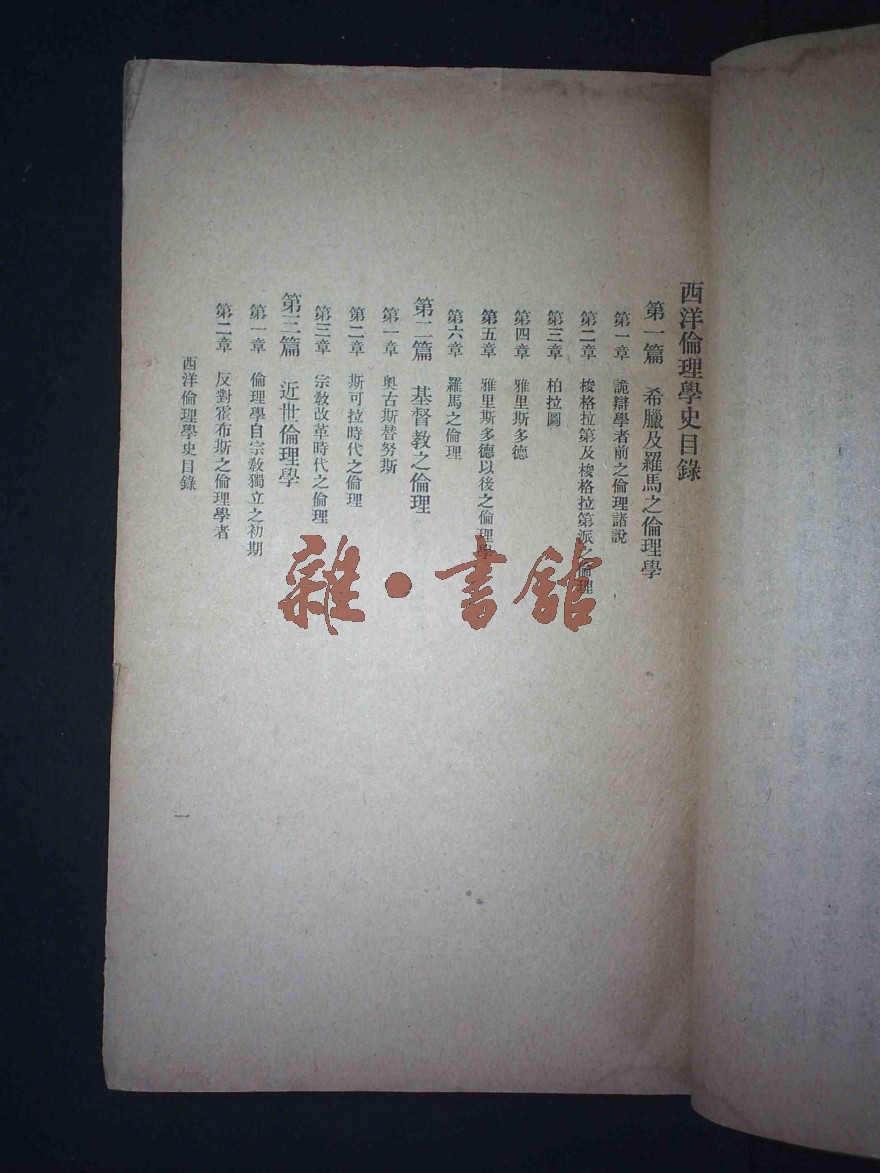 西洋倫理學史目錄
第一篇 希臘及羅馬之倫理學
第一章 詭辯學者前之倫理諸說
第二章 梭格拉第及梭格拉第派之倫理
第三章 柏拉圖
第四章 雅里斯多德
第五章 雅里斯多德以後之倫理學
第六章 羅馬之倫理
第二篇 基督教之倫理
第一章 奧古斯替努斯
第二章 斯可拉時代之倫理
第三章 宗教改革時代之倫理
第三篇 近世倫理學
第一章 倫理學自宗教獨立之初期
第二章 反對霍布斯之倫理學者
西洋倫理學史目錄
一
雜·書館